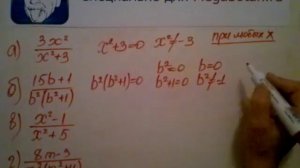 Специально для
а) 3x²/(x²+3) x²+3=0 x²≠-3 при любых x
б) (15b+1)/(b²(b²+1)) b²(b²+1)=0 b²=0 b=0
b²+1=0 b²≠-1
в) (x²-1)/(x²+5)
г) 8m-3